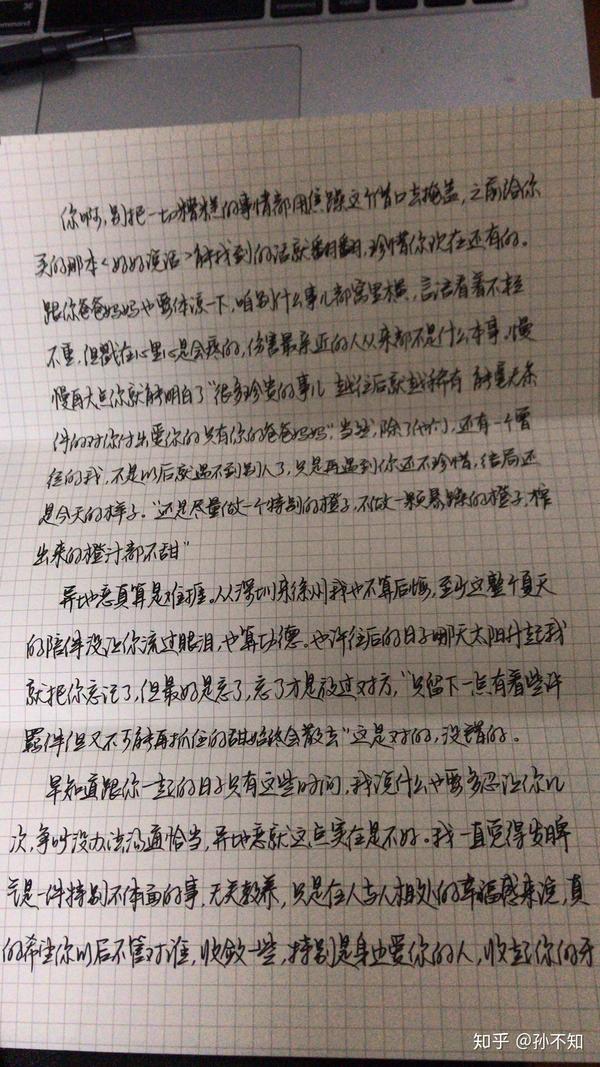 你啊,别把一切糟糕的事情都用焦躁这个借口去掩盖,之前给你
买的那本<好好说话>能找到的话就翻翻,珍惜你现在还有的。
跟你爸爸妈妈也要体谅一下,咱别什么事儿都窝里横,言语看着不轻
不重,但戳在心里心是会疼的,伤害最亲近的人从来都不是什么本事,慢
慢再大点你就能明白了"很多珍贵的事儿 越往后就越稀有 能毫无条
件的对你付出爱你的只有你的爸爸妈妈".当然,除了他们,还有一个曾
经的我,不是以后就遇不到别人了,只是再遇到你还不珍惜,结局还
是今天的样子。"还是尽量做一个特别的橙子,不做一颗暴躁的橙子,榨
出来的橙汁都不甜"
异地恋真算是难捱。从深圳来徐州我也不算后悔,至少这整个夏天
的陪伴没让你流过眼泪,也算功德。也许往后的日子哪天太阳升起我
就把你忘记了,但最好是忘了,忘了才是放过对方,"只留下一点有着些许
羁绊但又不可能再抓住的甜始终会散去"这是对的,没错的。
早知道跟你一起的日子只有这些时间,我说什么也要多忍让你几
次,争吵没办法沟通恰当,异地恋就这点实在是不好。我一直觉得发脾
气是一件特别不体面的事,无关教养,只是在人与人相处的幸福感来说,真
的希望你以后不管对谁,收敛一些,特别是身边爱你的人,收起你的牙
知乎 @孙不知